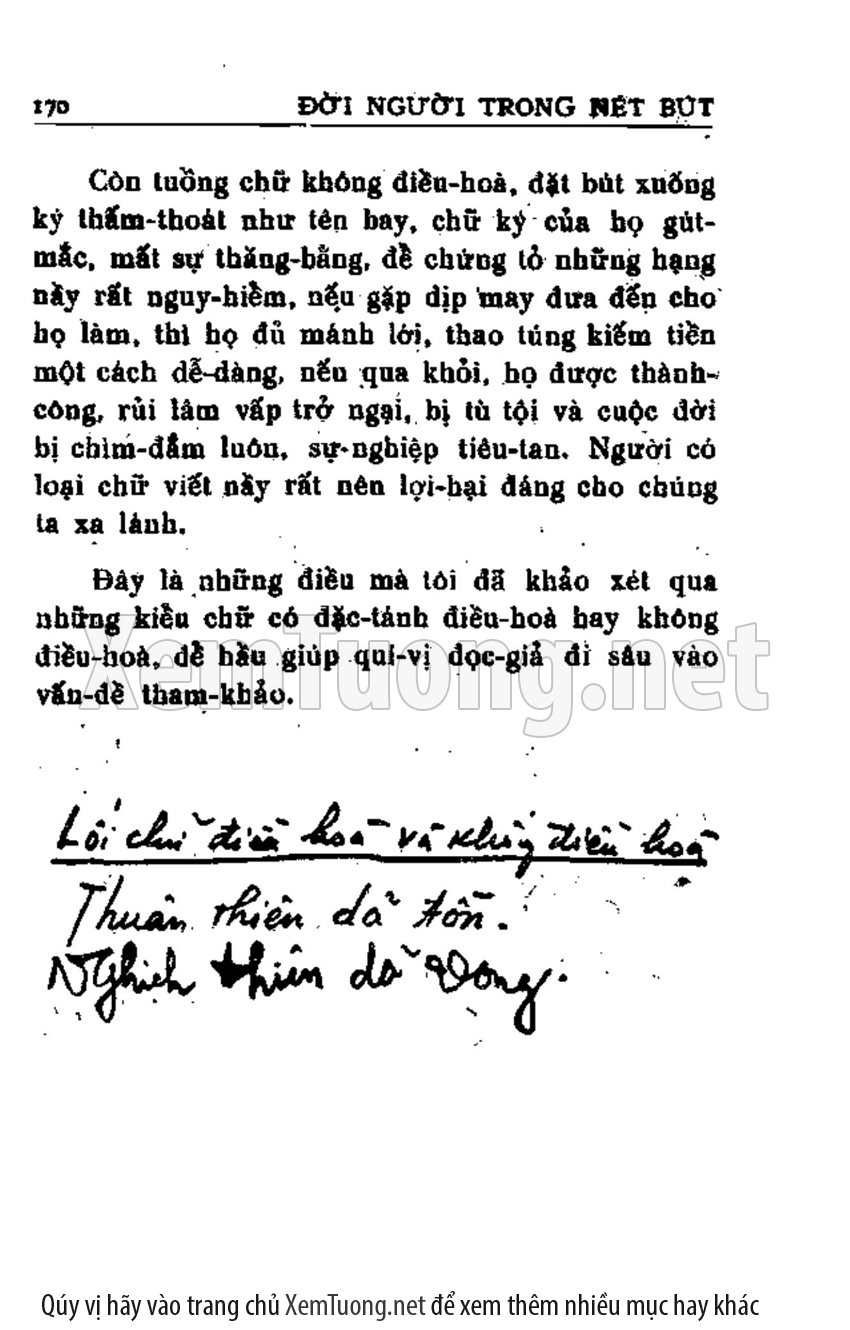 170 ĐỜI NGƯỜI TRONG NÉT BÚT
Còn tuồng chữ không điều-hoà, đặt bút xuống
ký thấm-thoát như tên bay, chữ ký của họ gút-
mắc, mất sự thăng-bằng, để chứng tỏ những hạng
nầy rất nguy-hiểm, nếu gặp dịp may đưa đến cho
họ làm, thì họ đủ mánh lới, thao túng kiếm tiền
một cách dễ-dàng, nếu qua khỏi, họ được thành-
công, rủi lâm vấp trở ngại, bị tù tội và cuộc đời
bị chìm-đắm luôn, sự-nghiệp tiêu-tan. Người có
loại chữ viết nầy rất nên lợi-hại đáng cho chúng
ta xa lánh.
Đây là những điều mà tôi đã khảo xét qua
những kiểu chữ có đặc-tánh điều-hoà hay không
điều-hoà, để hầu giúp quí-vị đọc-giả đi sâu vào
vấn-đề tham-khảo.
XemTuong.net
Lối chữ điều hoà và không điều hoà
Thuận thiên dả tồn.
Nghịch thiên dả vong.
Qúy vị hãy vào trang chủ XemTuong.net để xem thêm nhiều mục hay khác